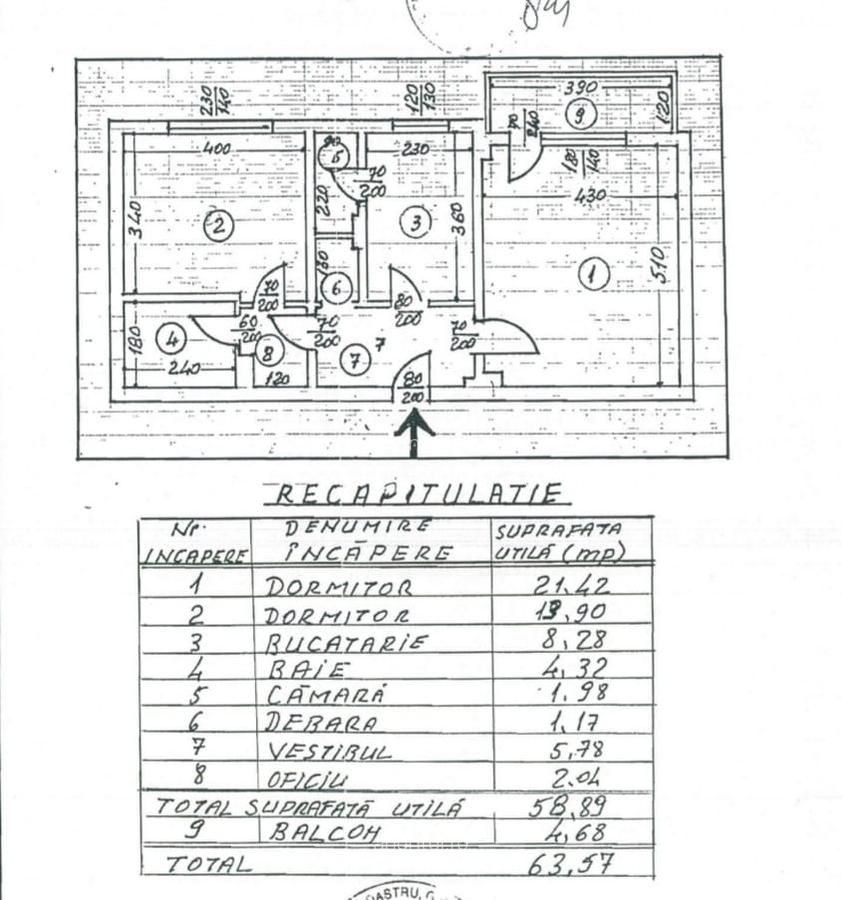 390
9
120
230
140
120
130
70
240
400
90
5
230
180
140
70
200
430
340
2
220
3
360
1
510
130
6
70
200
80
200
4
60
200
8
70
200
7
7
70
200
180
240
120
80
200
RECAPITULATIE
Nr. INCAPERE DENUMIRE ÎNCĂPERE SUPRAFATA UTILĂ (mp)
1 DORMITOR 21.42
2 DORMITOR 13,90
3 BUCATARIE 8,28
4 BAIE 4,32
5 CĂMARĂ 1.98
6 DEBARA 1,17
7 VESTIBUL 5,78
8 OFICIU 2.04
TOTAL SUPRAFATĂ UTILĂ 58,89
9 BALCON 4,68
TOTAL 63,57